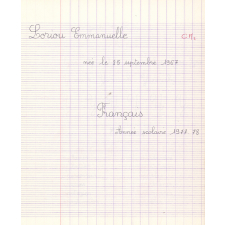 Emmanuelle
née le 28 septembre 1967
Français
Année scolaire 1977 78